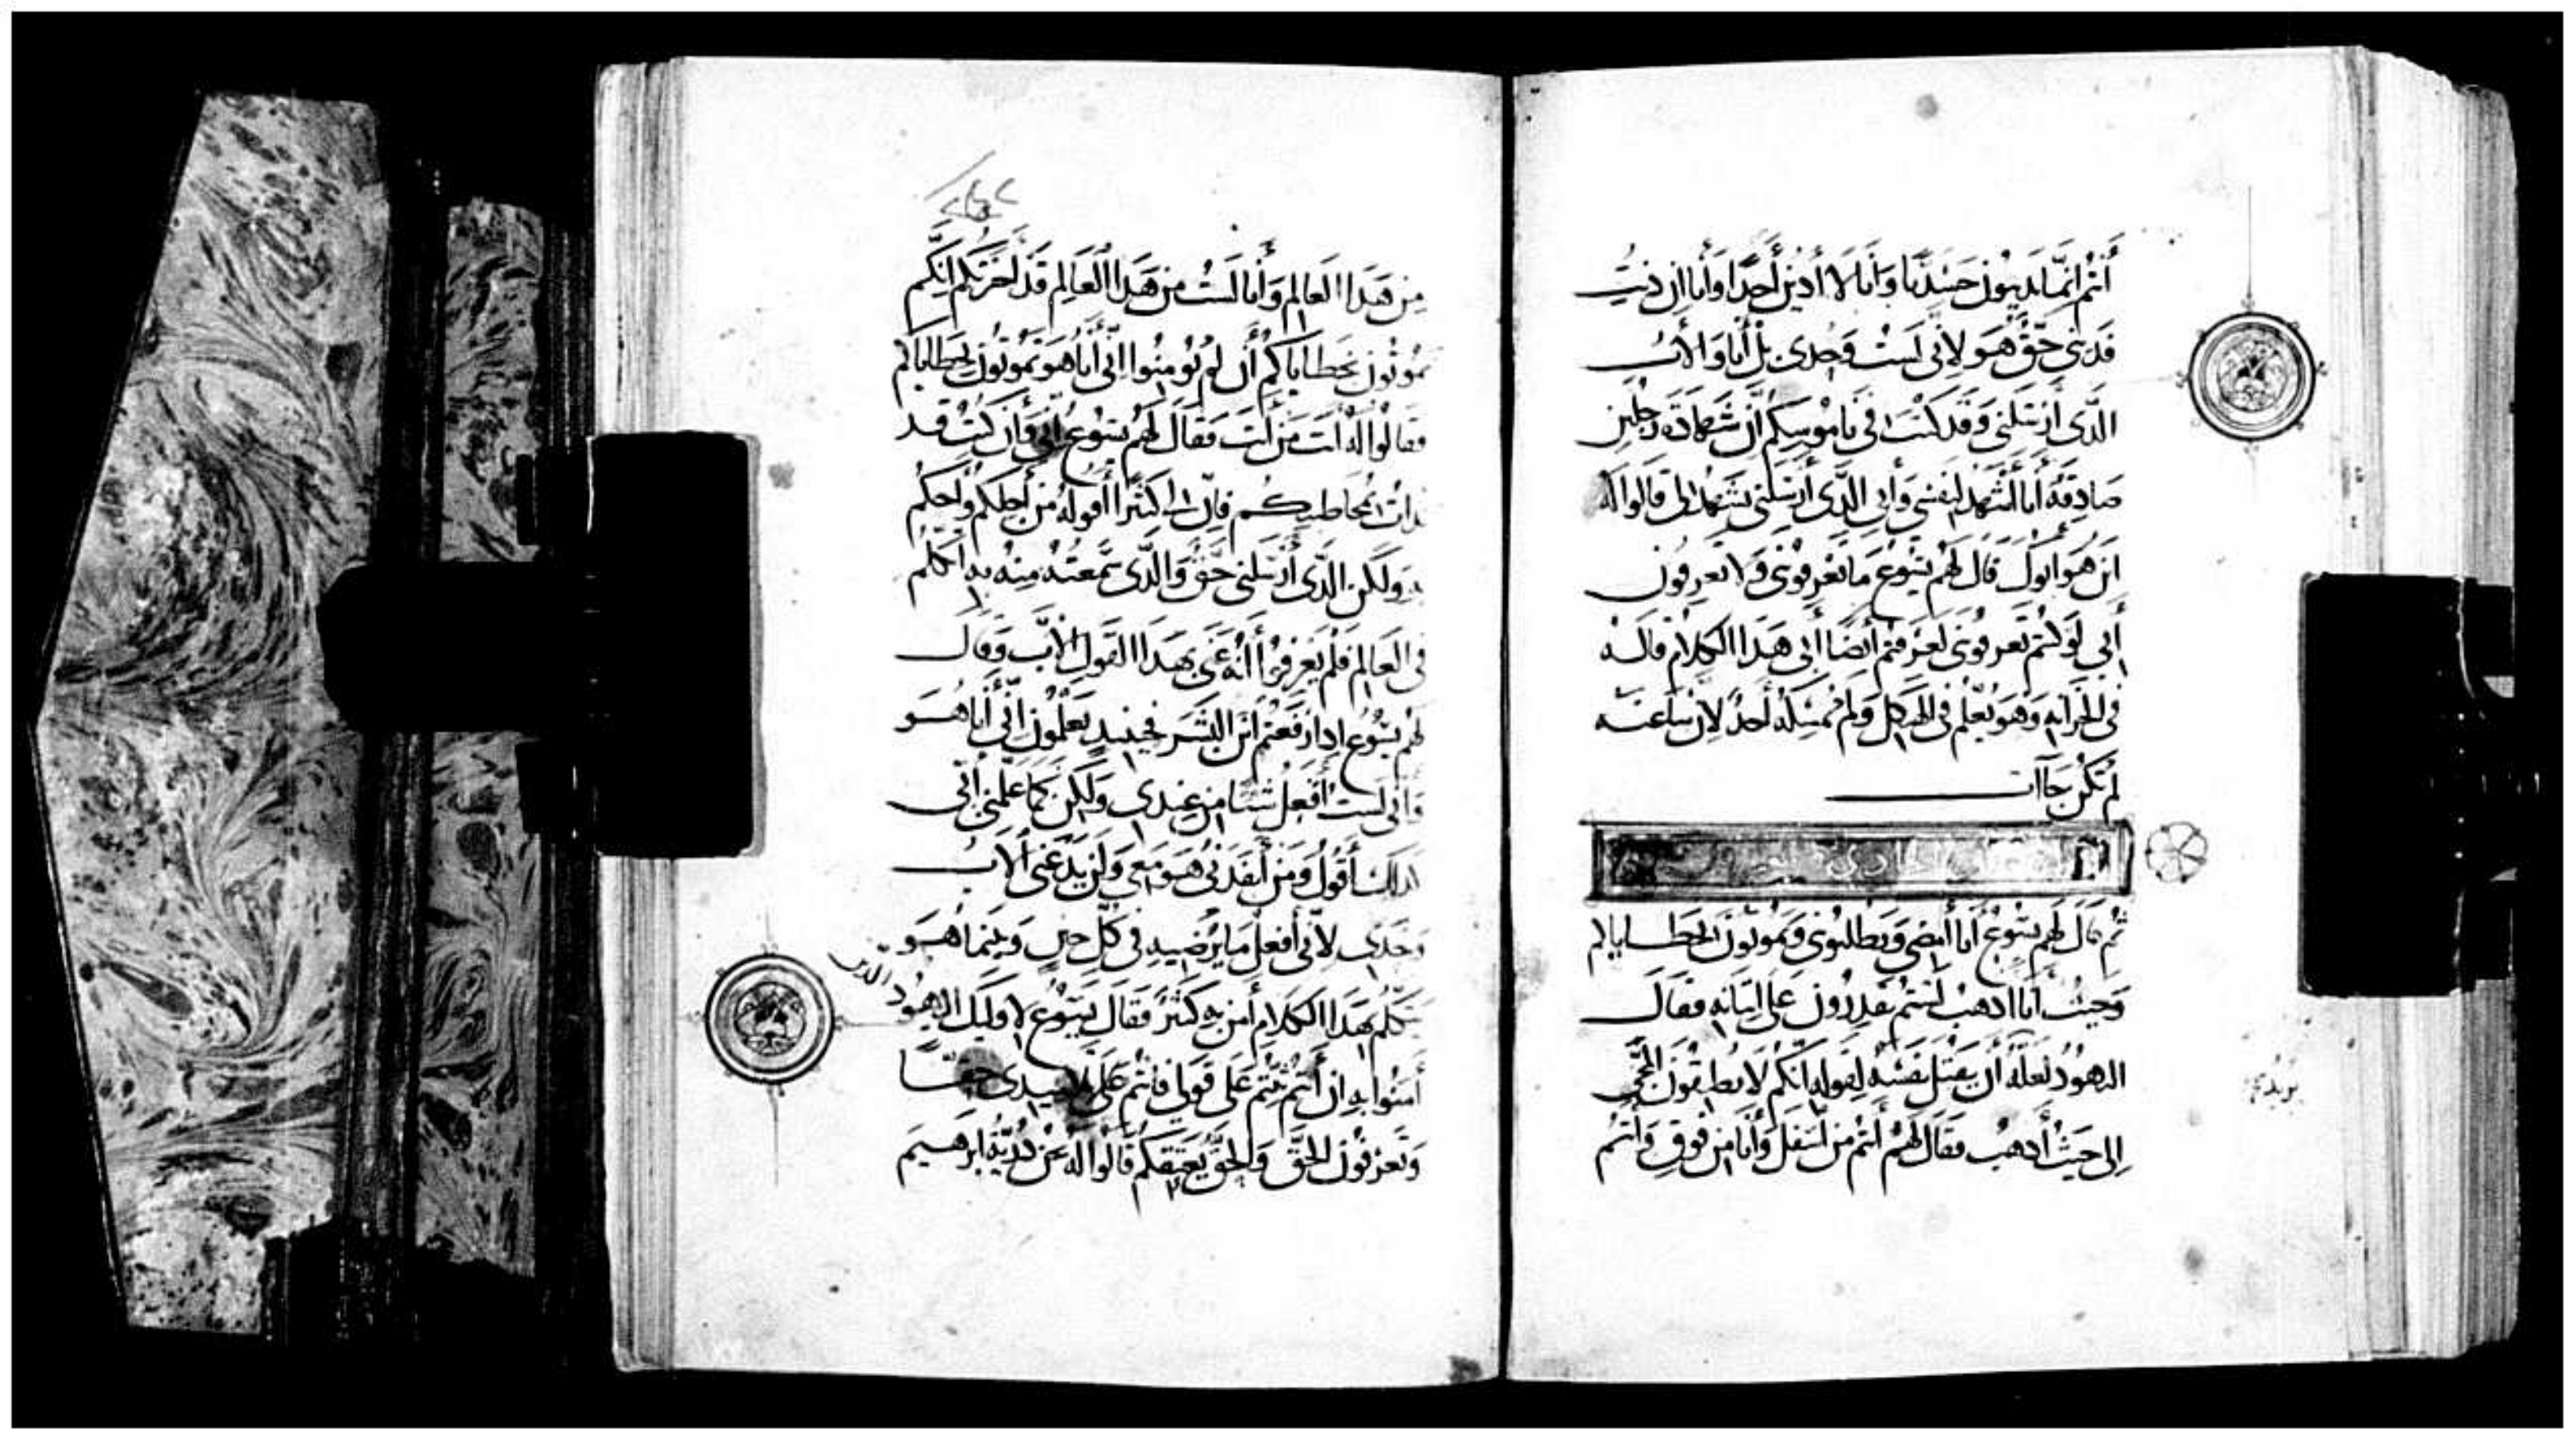 أنتم انما تدينون جسدنا وأنا لا أدين أحدا وأنا ان دنت
فديني حق هو لأني لست وحدي بل أنا والأب
الذي أرسلني وقد كتب في ناموسكم أن شهادة رجلين
صادقة أنا أشهد لنفسي وأبي الذي أرسلني يشهد لي قالوا له
اين هو ابوك قال لهم يسوع ما تعرفوني ولا تعرفون
أبي لو كنتم تعرفوني لعرفتم أيضا أبي هذا الكلام قاله
في الخزانه وهو يعلم في الهيكل ولم يمسكه أحد لأن ساعته
لم تكن جاات
ثم قال لهم يسوع أنا أمضي وتطلبوني وتموتون بخطاياكم
وحيث أنا اذهب لستم تقدرون على اتيانه فقال
اليهود لعله أن يقتل نفسه لقوله انكم لا تطيقون المجي
إلى حيث أذهب فقال لهم أنتم من أسفل وأنا من فوق وأنتم
من هذا العالم وأنا لست من هذا العالم قد أخبرتكم انكم
تموتون بخطاياكم أن لم تؤمنوا اني أنا هو تموتون بخطاياكم
فقالوا له أنت من أنت فقال لهم يسوع اني وأن كنت قد
بدات بمخاطبتكم فان لي كثيرا أقوله من أجلكم وأحكم
به ولكن الذي أرسلني حق والذي سمعته منه به أتكلم
في العالم فلم يعرفوا أنه عنى بهذا القول الأب وقال
لهم يسوع اذا رفعتم ابن البشر فحينيد تعلمون أني أنا هو
واني لست أفعل شيا من عندي ولكن كما علمني أبي
كذلك أقول ومن أنفذني هو معي ولن يدعني الأب
وحدي لأني أفعل ما يرضيه في كل حين وبينما هو
يتكلم بهذا الكلام أمن به كثير فقال يسوع لاوليك اليهود الذين
أمنوا به ان أنتم ثبتم على قولي فانتم تلاميدي حقا
وتعرفون الحق والحق يعتقكم قالوا له نحن ذرية ابرهيم